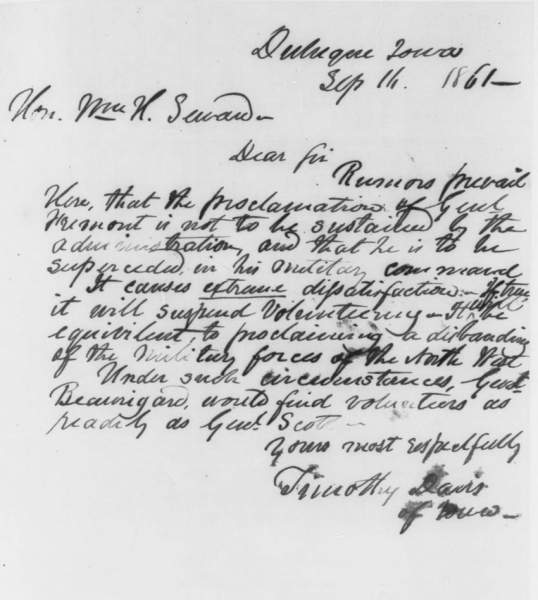 Dubuque Iowa
Sep 16. 1861—
Hon. Wm H. Seward
Dear Sir
Rumors prevail
Here, that the proclamation of Genl
Fremont is not to be sustained by the
administration, and that he is to be
superceded, in his military command
It causes extreme dissatisfaction— If true
it will suspend Volunteering— It will be
equivilent to proclaiming a disbanding
of the Military forces of the North West
Under such circumstances, Genl
Beauregard, would find volunteers as
readily as Genl. Scott—
Yours most respectfully
Timothy Davis
of Iowa—